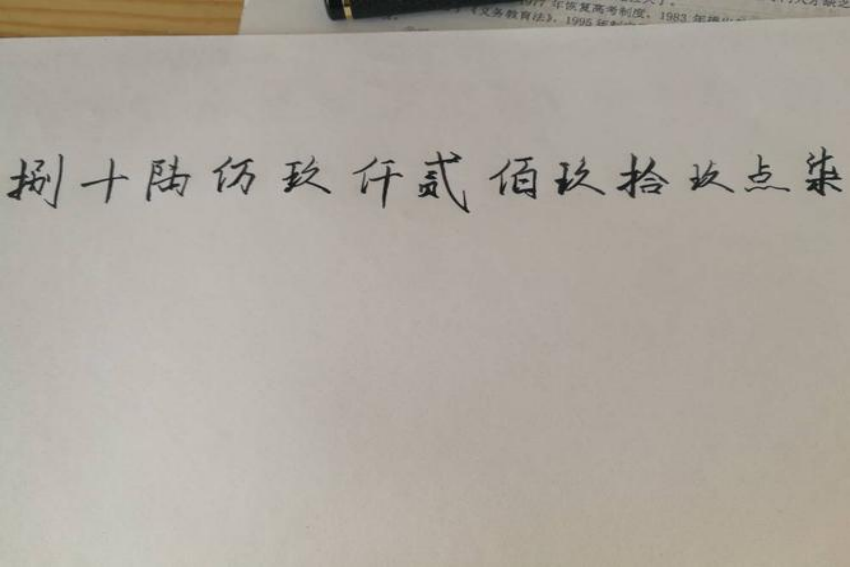 年恢复高考制度,1983 年
《义务教育法》,1995 年
捌十陆仿玖仟贰佰玖拾玖点柒